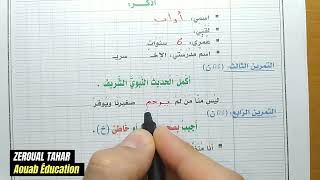 أذكر:
اسمي: أواب
لقبي:
عمري: 6 سنوات
اسم مدرستي: الأخ
التمرين الثالث:
أكمل الحديث النبوي الشريف.
ليس منا من لم يرحم صغيرنا ويوقر
التمرين الرابع:
أجيب خاطئ (خ).
أنا
ZEROUAL TAHAR
Aouab Éducation